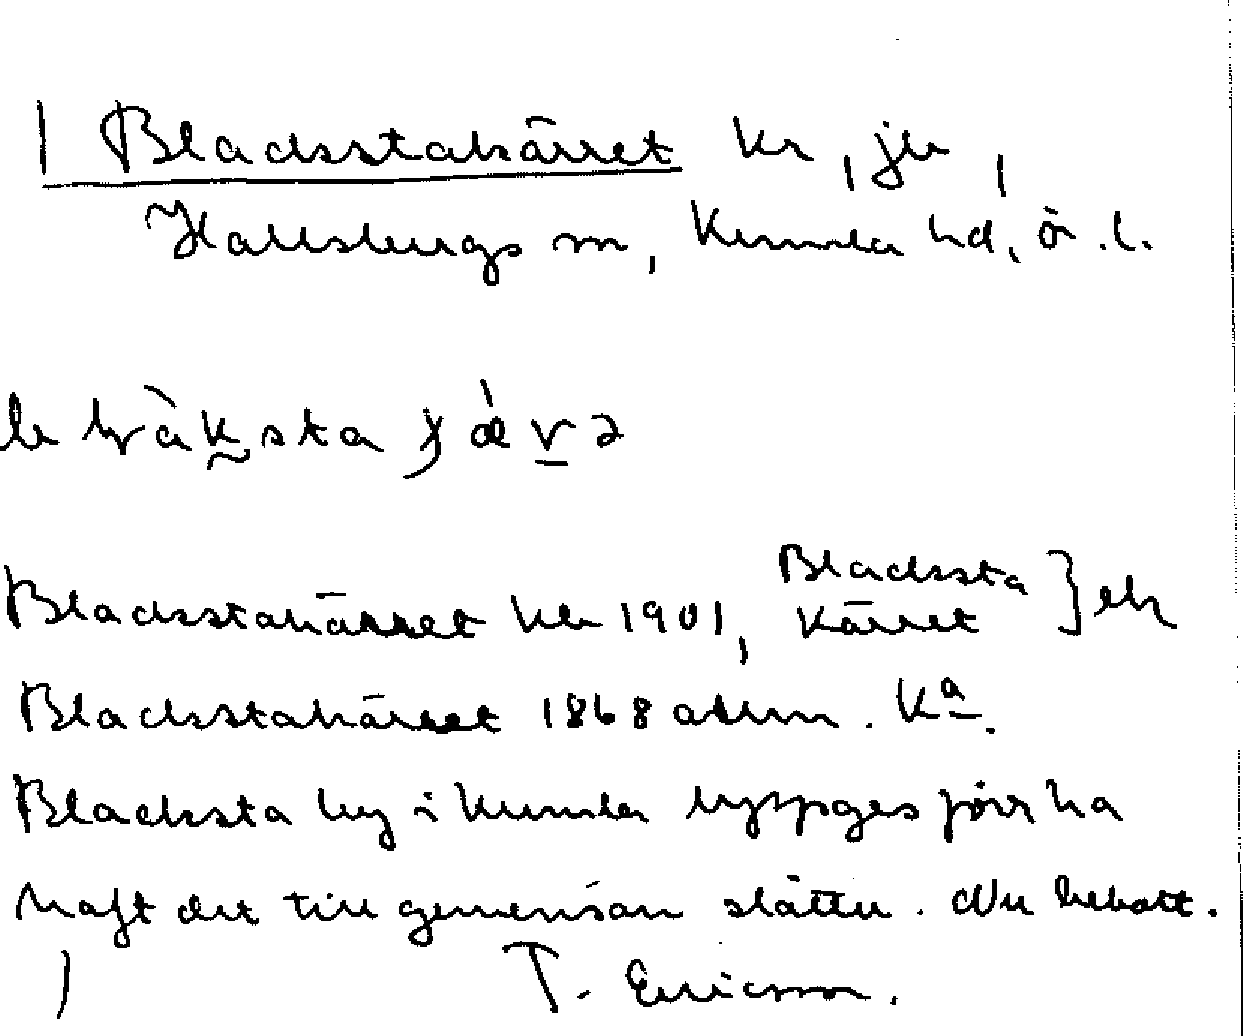 Blacksstakärret kr, jb,
Hallsbergs sn, Kumla hd, ör. l.
Blacksstakärret kb 1901, Blackssta Kärret } ek
Blacksstakärret 1868 avsn. Kª.
Blacksta by i Kumla uppges förr ha
haft det till gemensam slåtter. Nu bebott.
T. Ericsson.